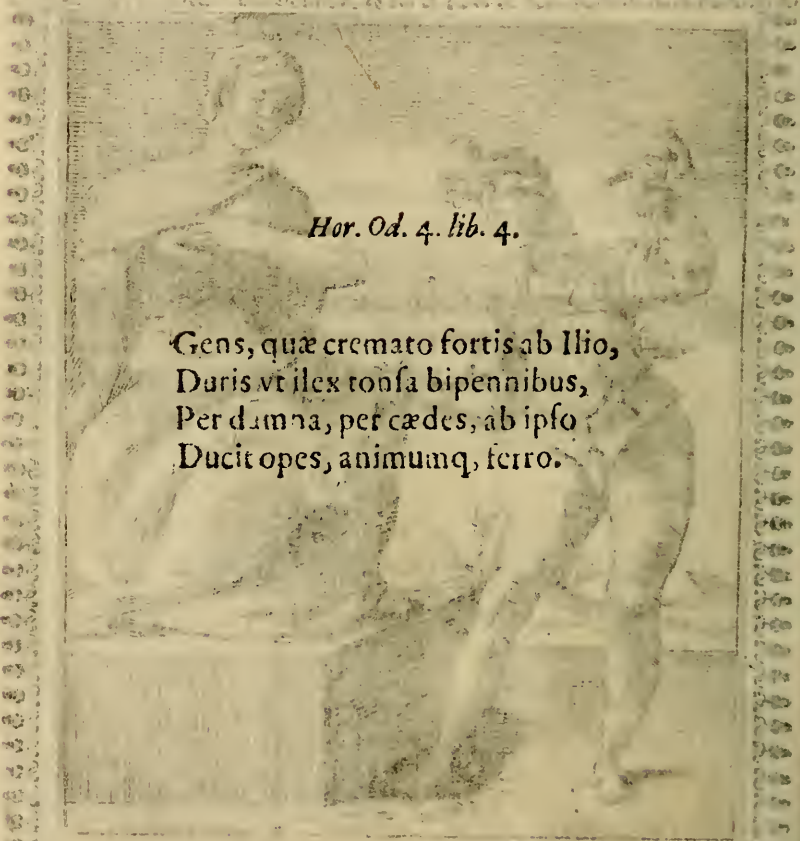 Hor. Od. 4. lib. 4.
Gens, quæ cremato fortis ab Ilio,
Duris vt ilex tonſa bipennibus,
Per damna, per cædes, ab ipſo
Ducit opes, animumq, ferro.